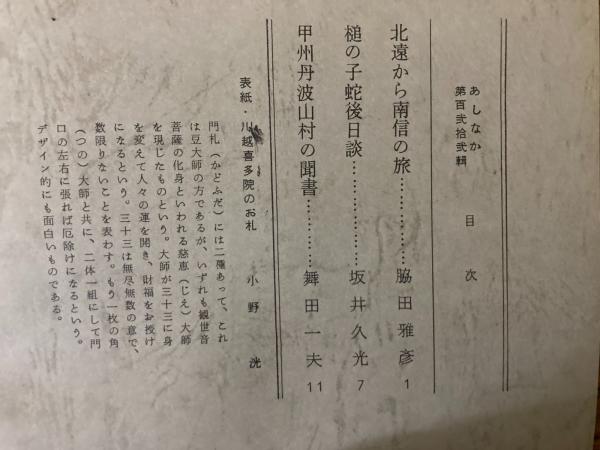 あしなか
第百弐拾弐輯
目次
北遠から南信の旅……………脇田雅彦 1
槌の子蛇後日談……………坂井久光 7
甲州丹波山村の聞書…………舞田一夫 11
表紙・川越喜多院のお札 小野洸
門札(かどふだ)には二種あって、これ
は豆大師の方であるが、いずれも観世音
菩薩の化身といわれる慈恵(じえ)大師
を現じたものという。大師が三十三に身
を変えて人々の運を開き、財福をお授け
になるという。三十三は無尽無数の意で、
数限りないことを表わす。もう一枚の角
(つの)大師と共に、二体一組にして門
口の左右に張れば厄除けになるという。
デザイン的にも面白いものである。